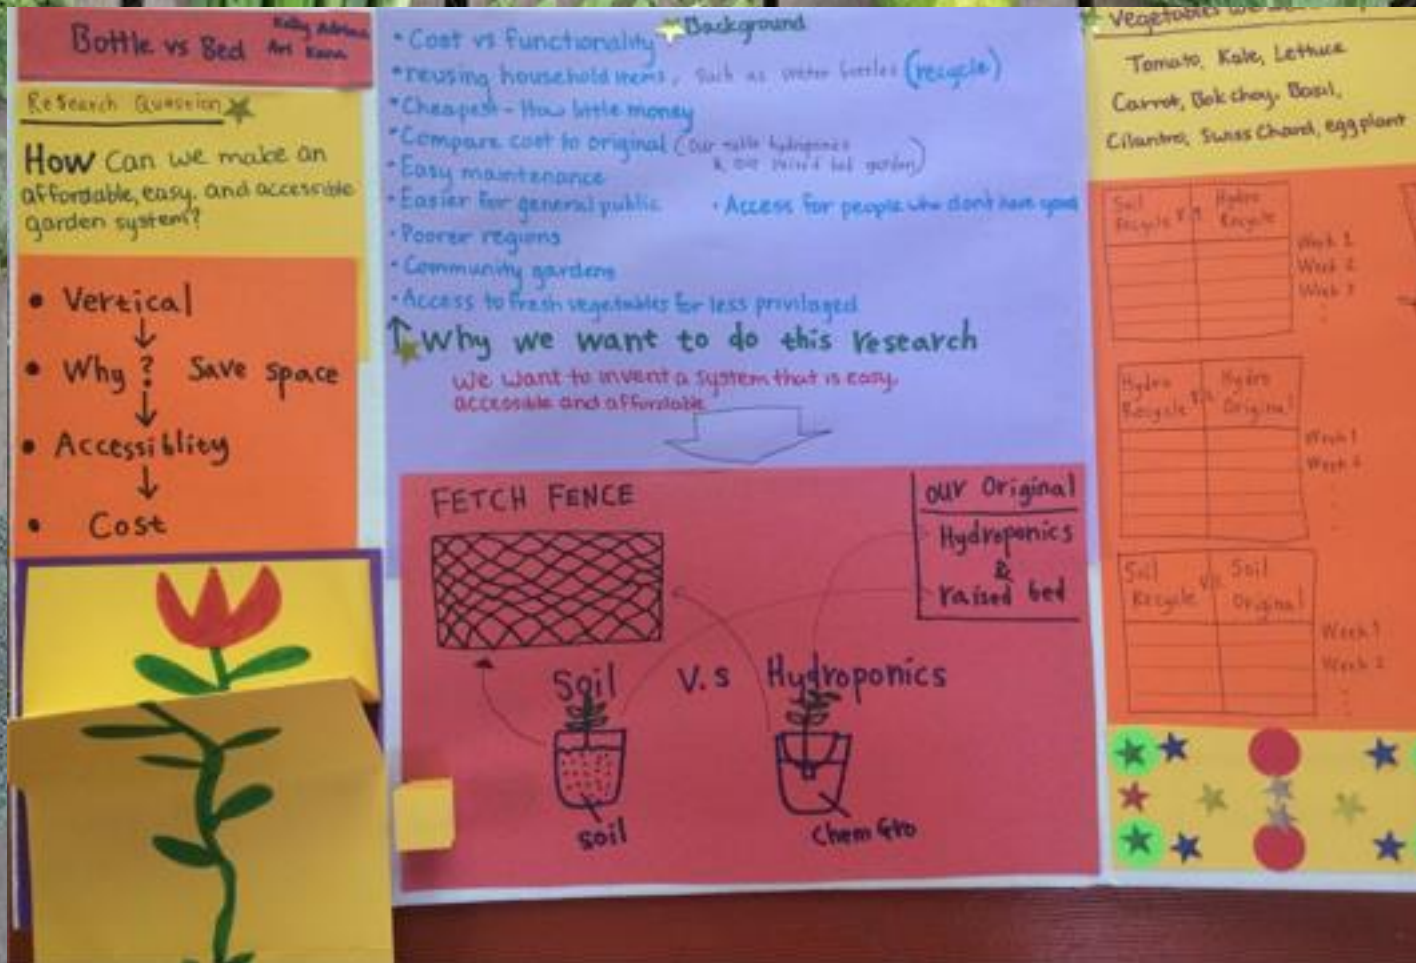 Bottle vs Bed
Kelly Adrian
Art Kana
Research Question
How can we make an
affordable, easy, and accessible
garden system?
• Vertical
• Why? Save space
• Accessiblity
• Cost
Background
• Cost vs functionality
• reusing household items, such as water bottles (recycle)
• Cheapest - How little money
• Compare cost to original (our hydroponics
& our raised bed garden)
• Easy maintenance
• Easier for general public
• Access for people who dont have
• Poorer regions
• Community gardens
• Access to fresh vegetables for less privilaged
↑ Why we want to do this research
We want to invent a system that is easy,
accessible and affordable
FETCH FENCE
our original
Hydroponics
&
raised bed
Soil V.s Hydroponics
soil
Chem Gro
Vegetables
Tomato, Kale, Lettuce
Carrot, Bok choy, Basil,
Cilantro, Swiss Chard, eggplant
Soil Recycle vs Hydro Recycle
Week 1
Week 2
Week 3
Hydro Recycle vs Hydro Original
Week 1
Week 2
Soil Recycle vs Soil Original
Week 1
Week 2